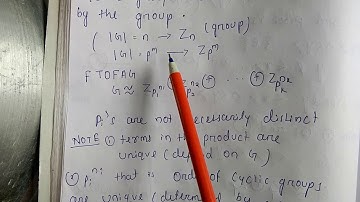 by the group.
( |G| = n → Zn (group)
|G| = p^m → Zp^m
F T O F A G
G ≈ Z_{p_1^{n_1}} ⊕ Z_{p_2^{n_2}} ⊕ ... ⊕ Z_{p_k^{n_k}}
Pi's are not necessarily distinct
NOTE ① terms in the product are
unique (depend on G)
② p_i^{n_i} that is order of cyclic groups
are unique (determined by